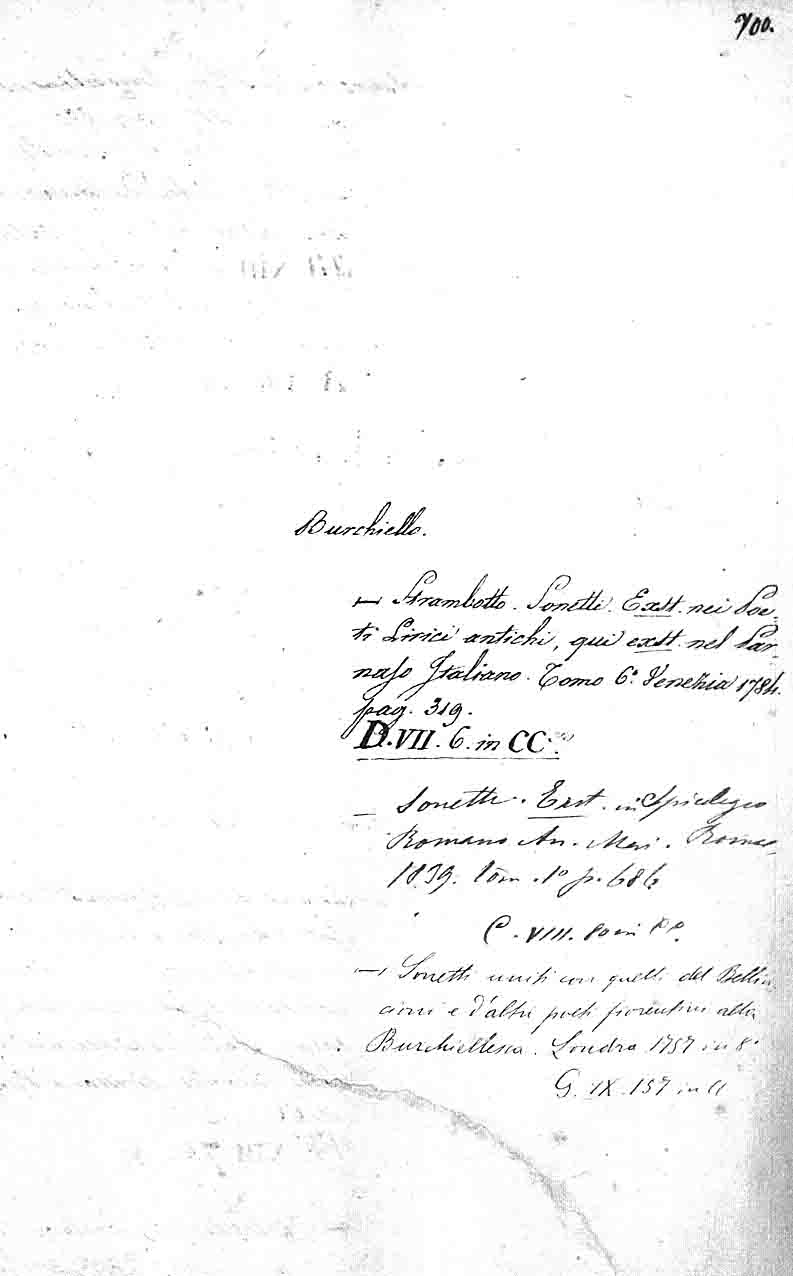 700.
Burchiello.
— Strambotto. Sonetti. Exst. nei Poe-
ti Lirici antichi, qui exst. nel Par-
naso Italiano. Tomo 6.° Venezia 1784.
pag. 319.
D.VII. 6. in CC
— Sonetti. Exst. in Spicilegio
Romano An. Mai. Romae
1839. tom. 1° p. 686
C. VIII. 80 in PP.
— Sonetti uniti con quelli del Bellin
cioni e d'altri poeti fiorentini alla
Burchiellesca. Londra 1757 in 8°
G. IX. 157 in